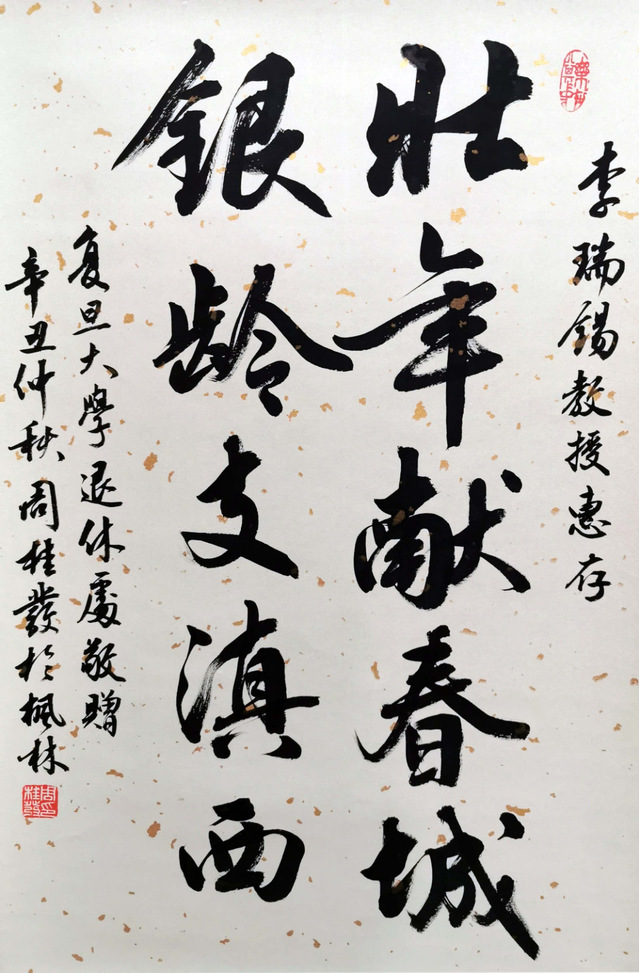 李瑞锡教授惠存
壮年献春城
银龄支滇西
复旦大學退休處敬贈
辛丑仲秋周桂發於楓林
周桂發印